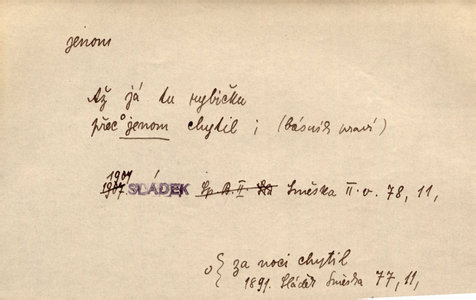 jenom
Až já tu rybičku
přec° jenom chytil i (básník praví)
1907
1907 SLÁDEK Sp B. II Směska II. v. 78, 11,
o { za noci chytil
1891. Sládek Směska 77, 11,